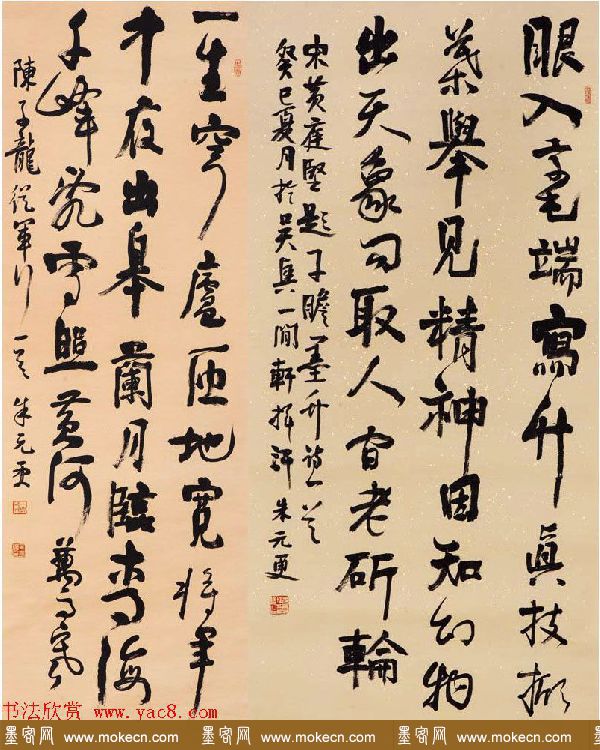 眼入毫端寫竹真技掀
葉舉見精神因知幻物
出天象問取人間老斫輪
宋黄庭堅題子瞻墨竹詩一首
癸巳夏月於吴興一閒軒揮汗 朱元更
一望穹廬匝地寬將軍
半夜出皋蘭月臨青海
千峰雪照黄河萬馬寒
陳子龍從軍行一首 朱元更
书法欣赏 www.yac8.com
墨客网 www.mokecn.com 墨客网 www.mokecn.com 墨客网 www.mokecn.com